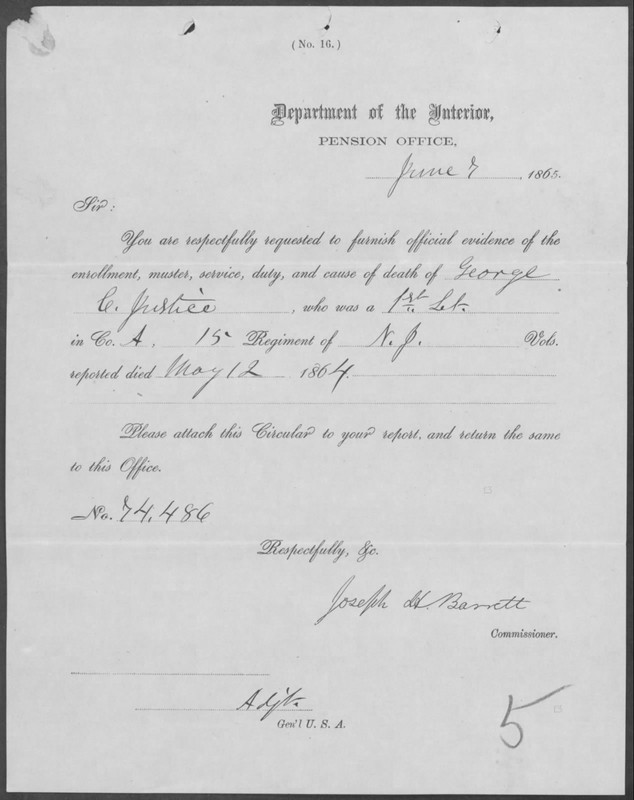 (No. 16.)
Department of the Interior,
PENSION OFFICE,
June 7, 1865.
Sir:
You are respectfully requested to furnish official evidence of the
enrollment, muster, service, duty, and cause of death of George
C. Justice, who was a 1st Lt.
in Co. A, 15 Regiment of N. J. Vols.
reported died May 12 1864.
Please attach this Circular to your report, and return the same
to this Office.
No. 74,486
Respectfully, &c.
Joseph H. Barrett
Commissioner.
Adjt.
Gen'l U. S. A.
5